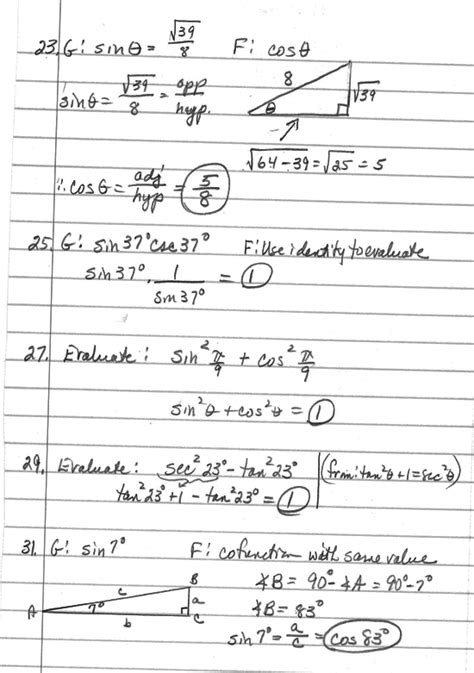 23. G: sinθ = √39/8 F: cosθ
sinθ = √39/8 = opp/hyp.
8
√39
θ
√64-39 = √25 = 5
∴ cosθ = adj/hyp = 5/8
25. G: sin37° csc37° F: Use identity to evaluate
sin37° · 1/sin37° = 1
27. Evaluate: sin² π/9 + cos² π/9
sin²θ + cos²θ = 1
29. Evaluate: sec²23° - tan²23° (from: tan²θ + 1 = sec²θ)
tan²23° + 1 - tan²23° = 1
31. G: sin7° F: cofunction with same value
A 7° c B a C b
∡B = 90° - ∡A = 90° - 7°
∡B = 83°
sin7° = a/c = cos83°